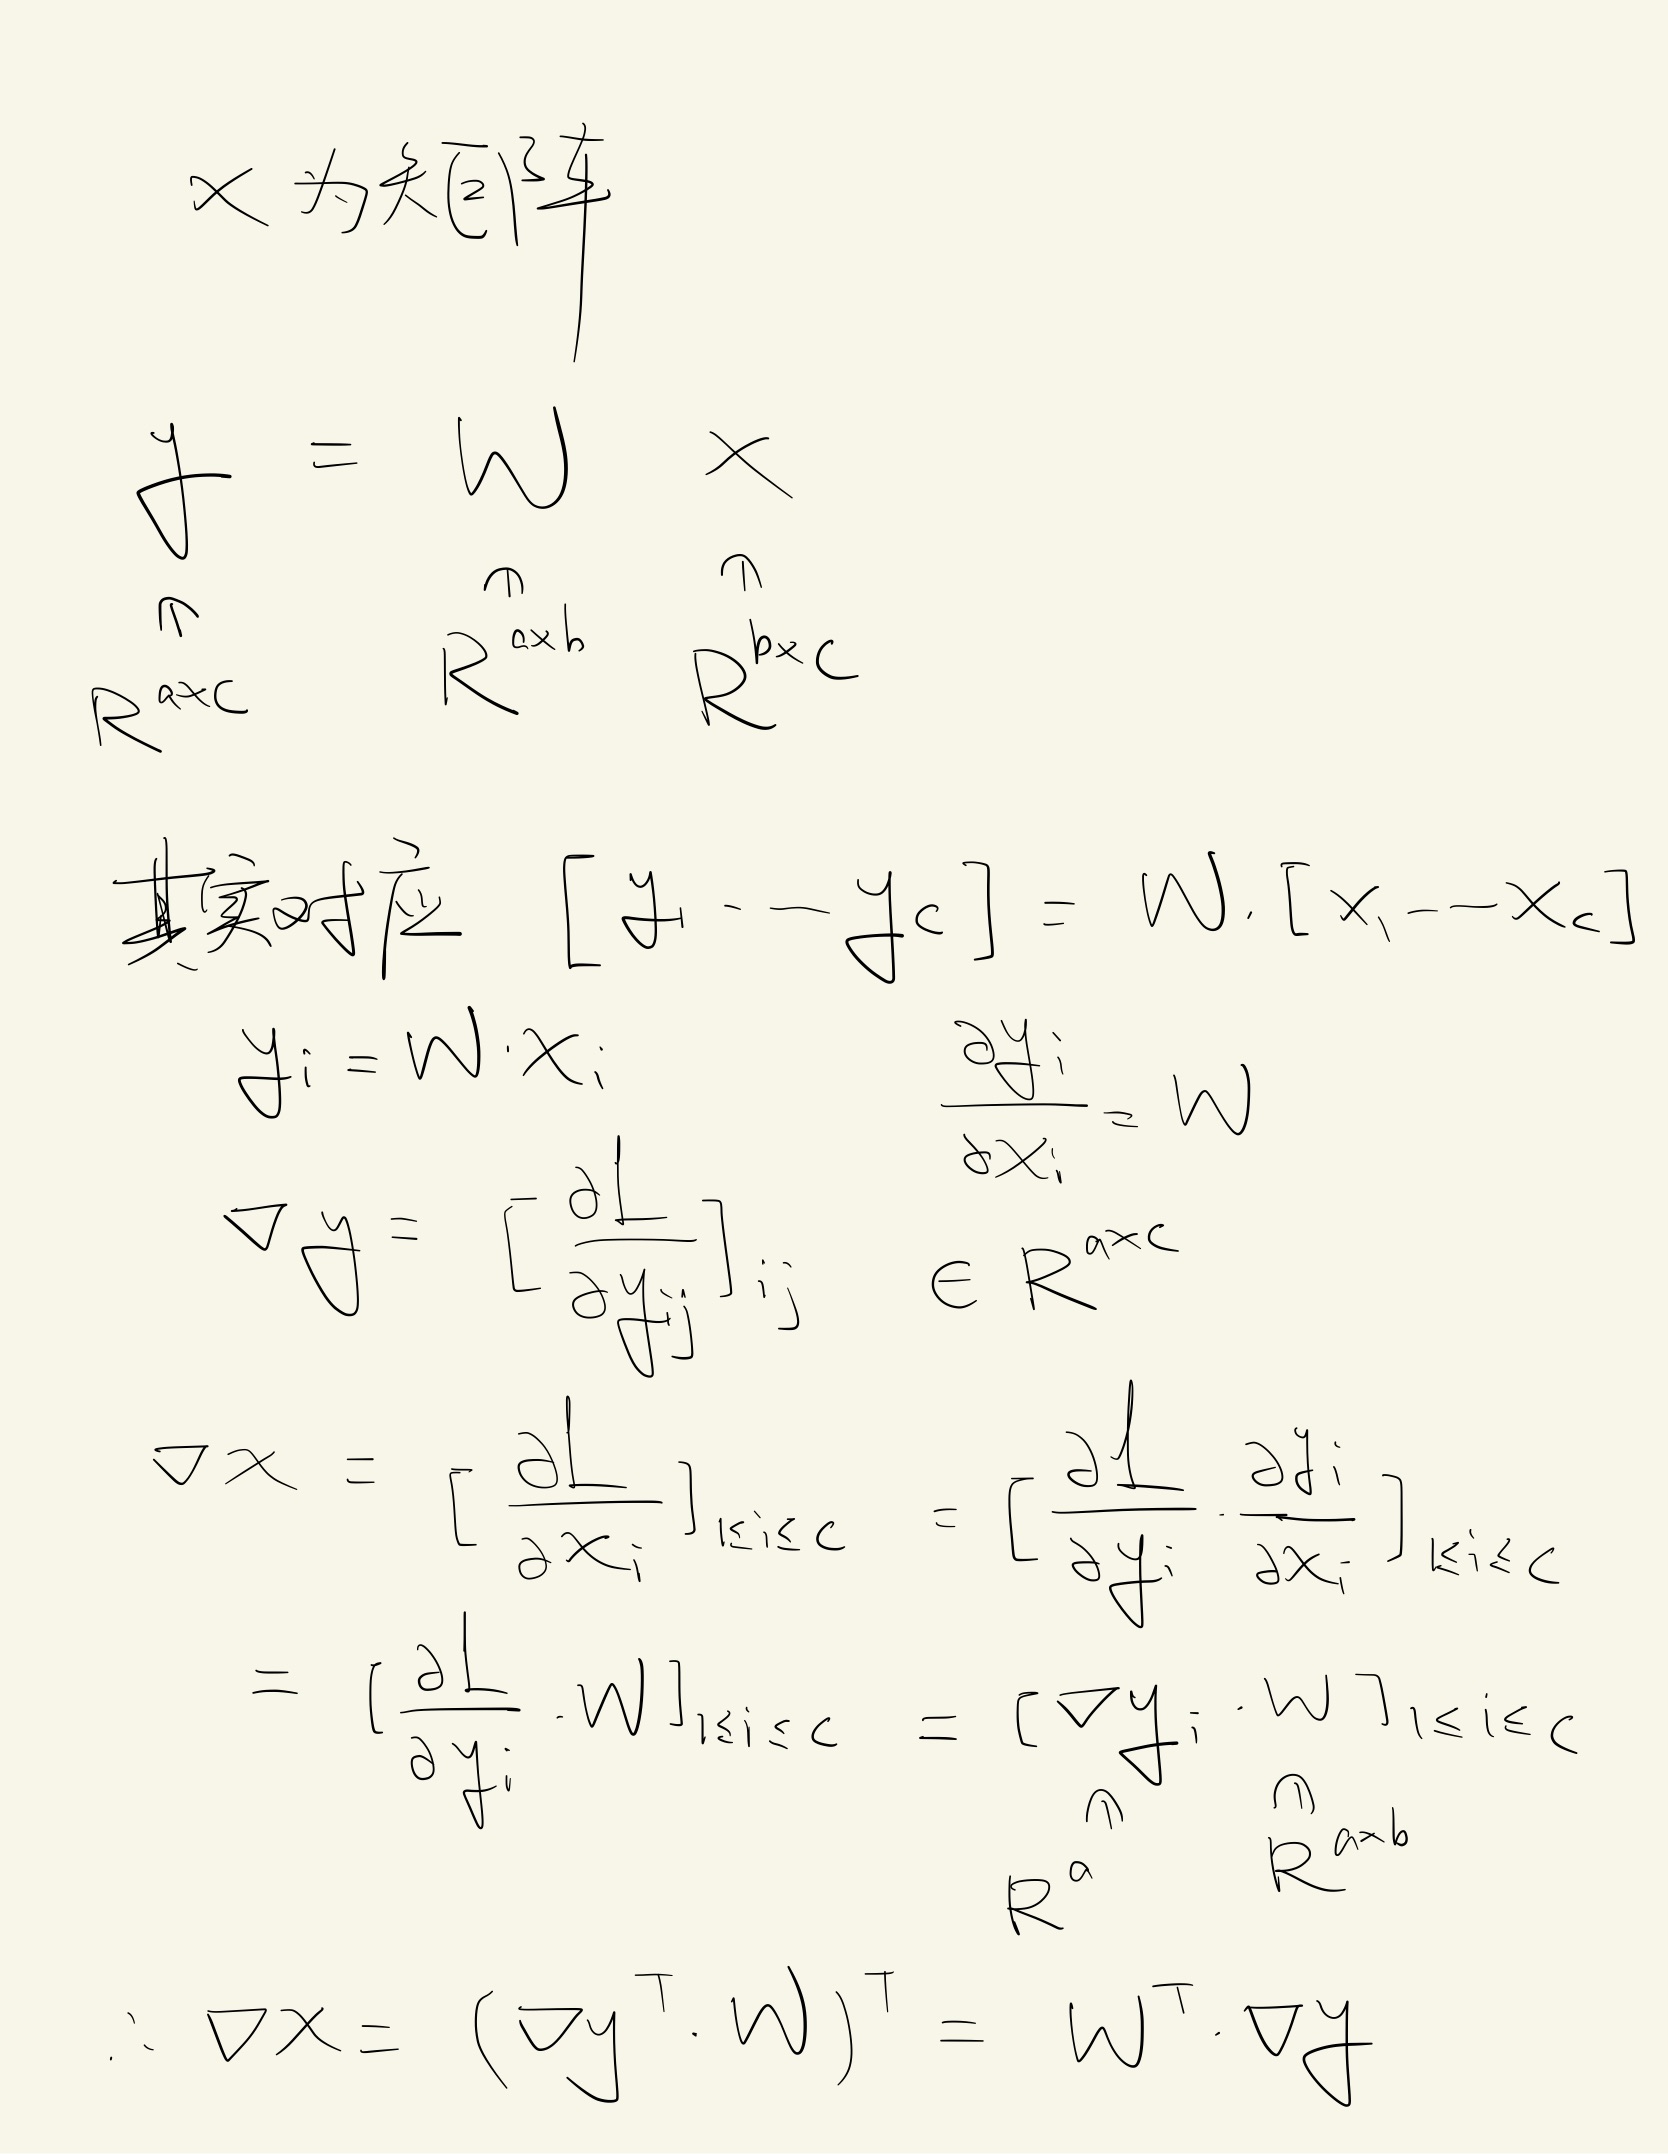 x 为矩阵
y = W x
↑ ↑ ↑
R^{a×c} R^{a×b} R^{b×c}
其实对应 [y_1 --- y_c] = W·[x_1 --- x_c]
y_i = W·x_i ∂y_i/∂x_i = W
∇y = [∂L/∂y_{ij}]_{ij} ∈ R^{a×c}
∇x = [∂L/∂x_i]_{1≤i≤c} = [∂L/∂y_i · ∂y_i/∂x_i]_{1≤i≤c}
= [∂L/∂y_i · W]_{1≤i≤c} = [∇y_i · W]_{1≤i≤c}
↑ ↑
R^a R^{a×b}
∴ ∇x = (∇y^T · W)^T = W^T · ∇y